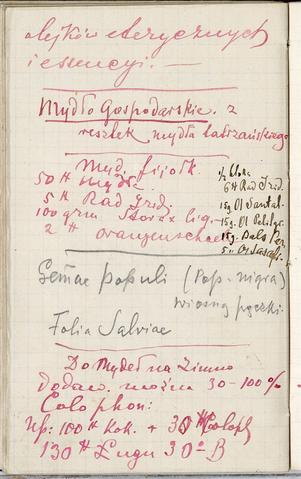 olejków eterycznych
i essencyi. —
Mydło Gospodarskie z
resztek mydła
Myd. fijołk.
50 ℔ Mydła
5 ℔ Rad Irid.
100 grm Storax liq.
2 ℔ Orangenschal
6 ℔ Rad Irid.
15g. Ol Santal.
15g. Bals Per.
Gemae populi (Pop. nigra)
wiosną pączki.
Folia Salviae
Do Mydeł na Zimno
dodaw. można 30-100%
Colophon:
Np: 100 ℔ Kok. + 30 ℔ Coloph
130 ℔ Ługu 30° B